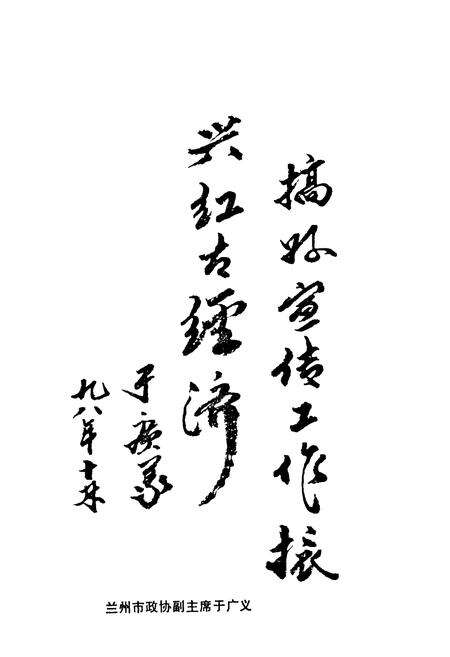 搞好宣传工作振
兴红古經济
于廣義
九八年十
兰州市政协副主席于广义